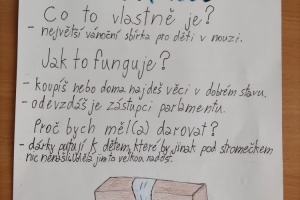 Co to vlastně je?
- největší vánoční sbírka pro děti v nouzi.
Jak to funguje?
- koupíš nebo doma najdeš věci v dobrém stavu.
- odevzdáš je zástupci parlamentu.
Proč bych měl(a) darovat?
- dárky putují k dětem, které by jinak pod stromečkem
nic nenašly, udělá jim to velkou radost.